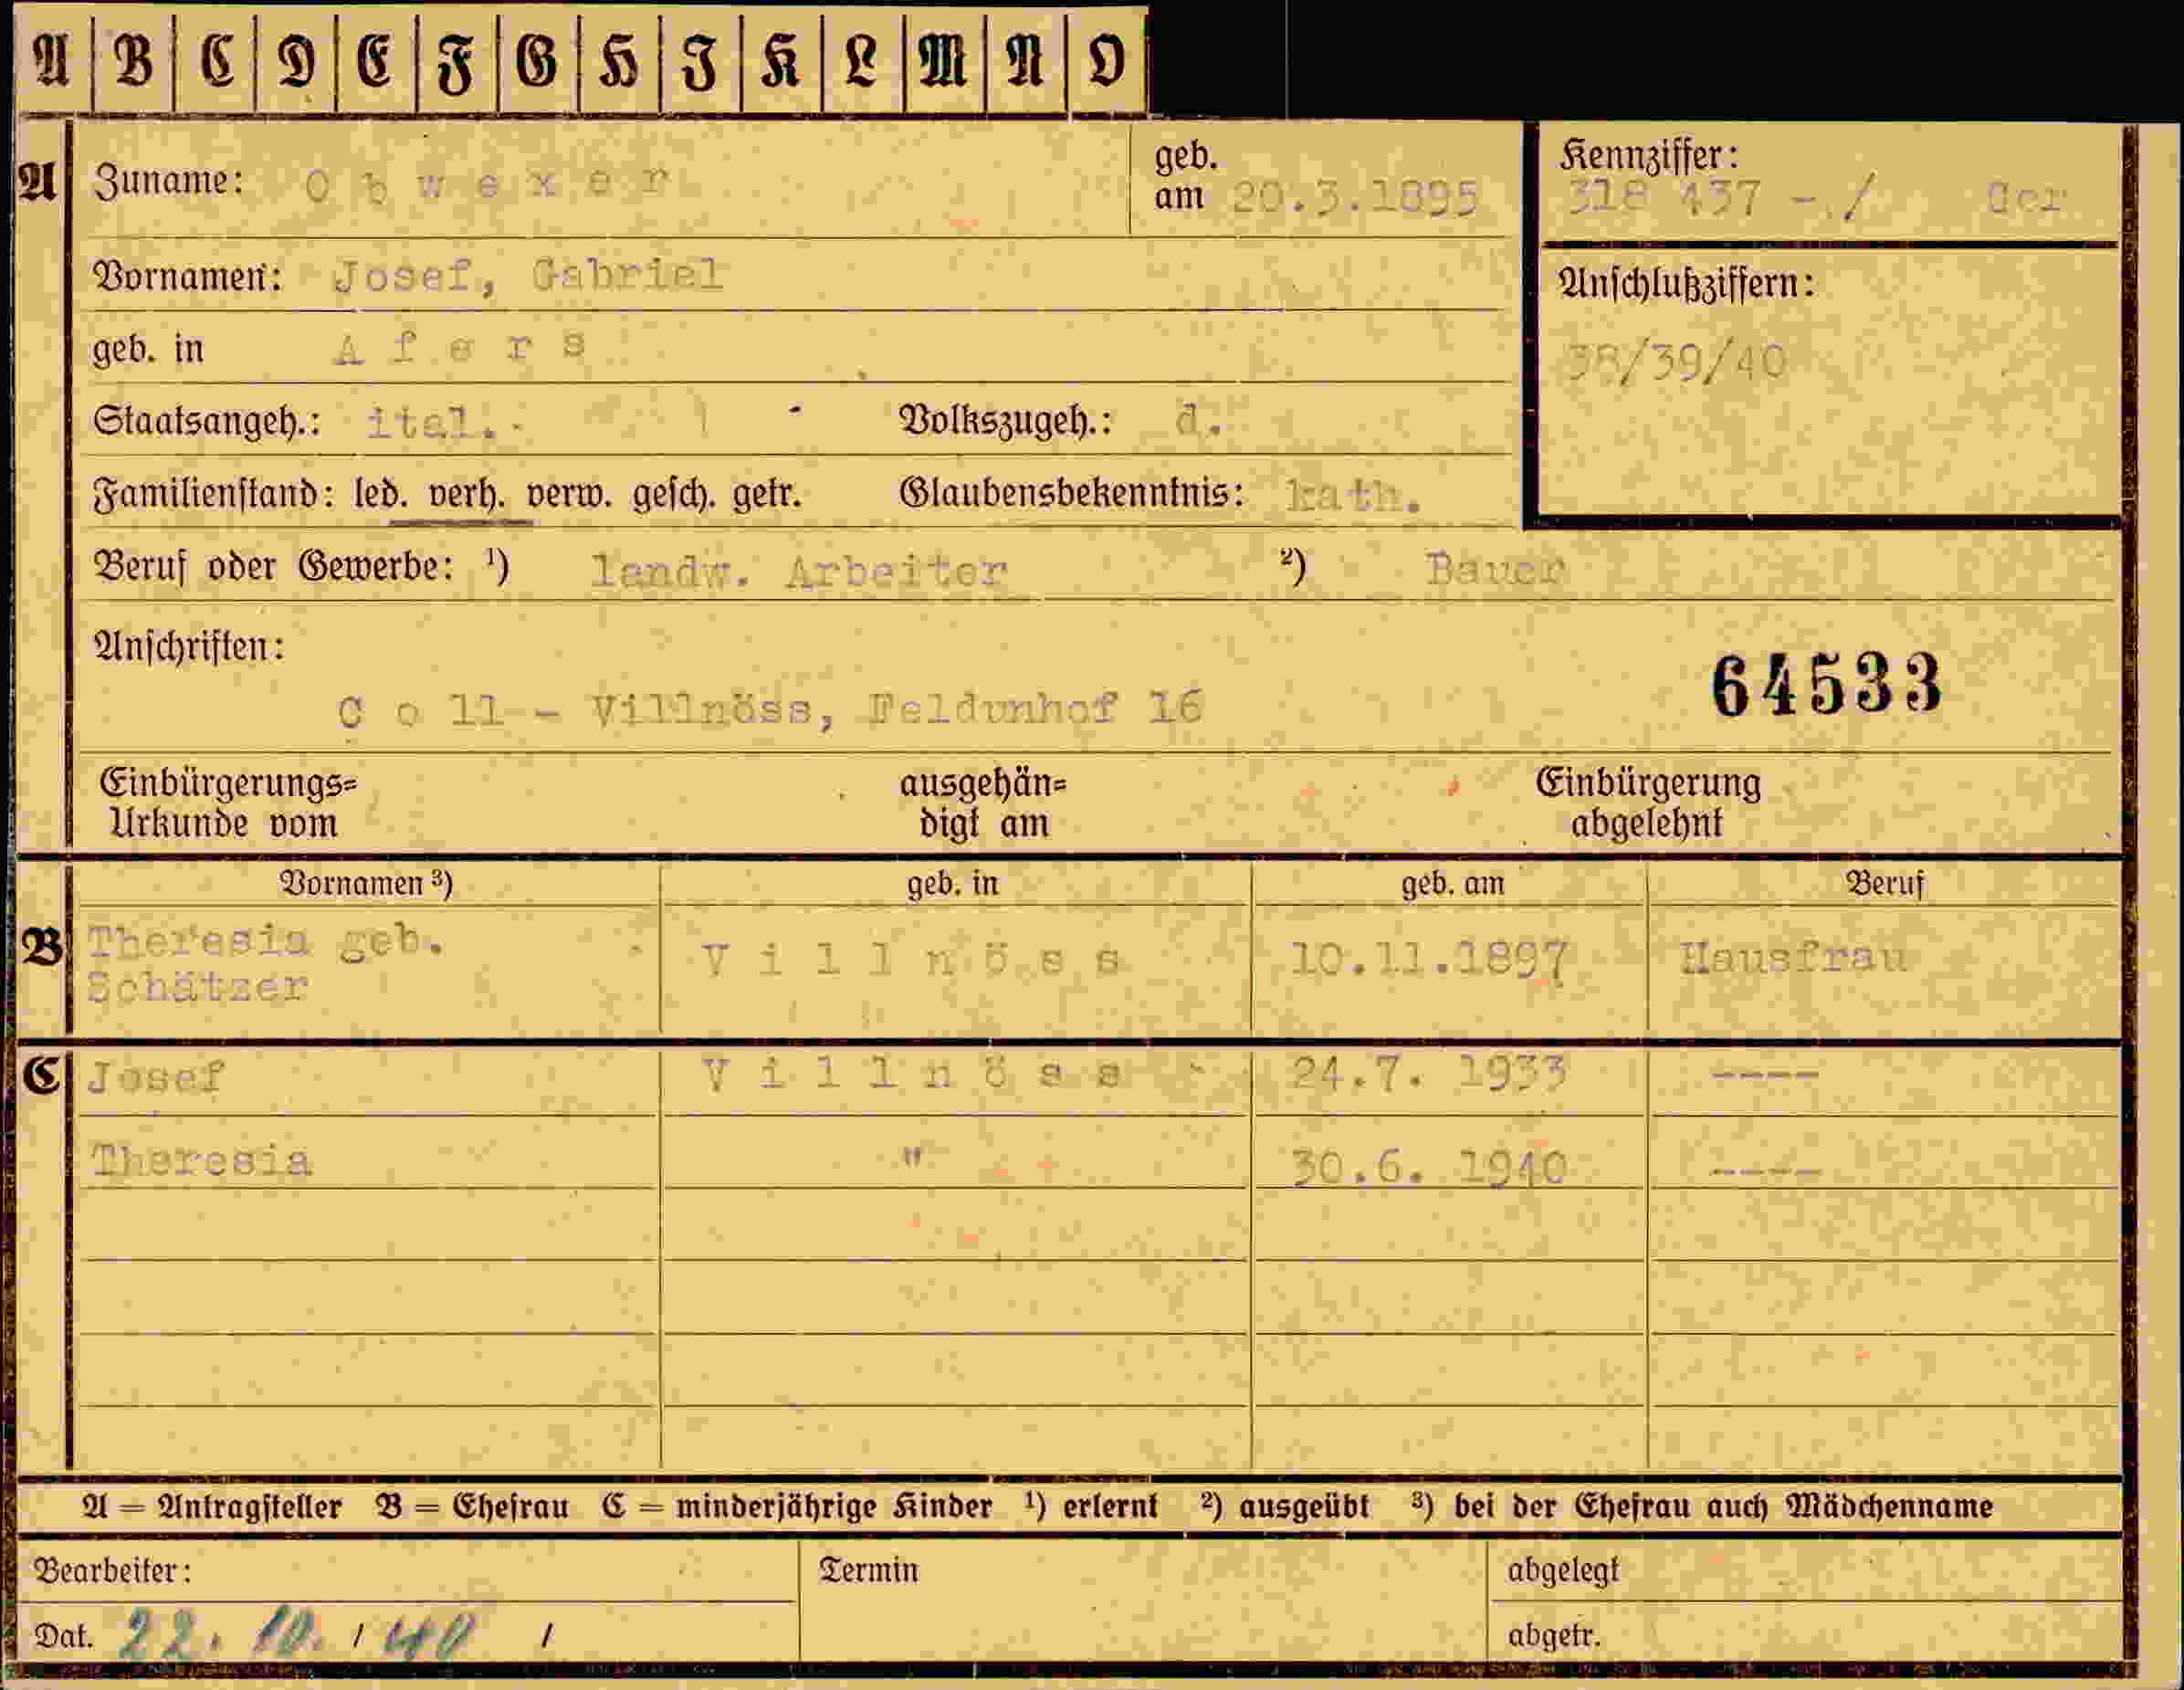 A B C D E F G H I K L M N O
A Zuname: Obwexer geb. am 20.3.1895
Kennziffer: 318 437 - / Ger
Vornamen: Josef, Gabriel
Anschlußziffern:
38/39/40
geb. in Afers
Staatsangeh.: ital. Volkszugeh.: d.
Familienstand: led. verh. verw. gesch. getr. Glaubensbekenntnis: kath.
Beruf oder Gewerbe: ¹) landw. Arbeiter ²) Bauer
Anschriften:
64533
Coll - Villnöss, Feldunhof 16
Einbürgerungs= Urkunde vom ausgehän= digt am Einbürgerung abgelehnt
Vornamen ³) geb. in geb. am Beruf
B Theresia geb. Schätzer Villnöss 10.11.1897 Hausfrau
C Josef Villnöss 24.7. 1933 ----
Theresia " 30.6. 1940 ----
A = Antragsteller B = Ehefrau C = minderjährige Kinder ¹) erlernt ²) ausgeübt ³) bei der Ehefrau auch Mädchenname
Bearbeiter: Termin abgelegt
Dat. 22. 10. / 40 / abgetr.